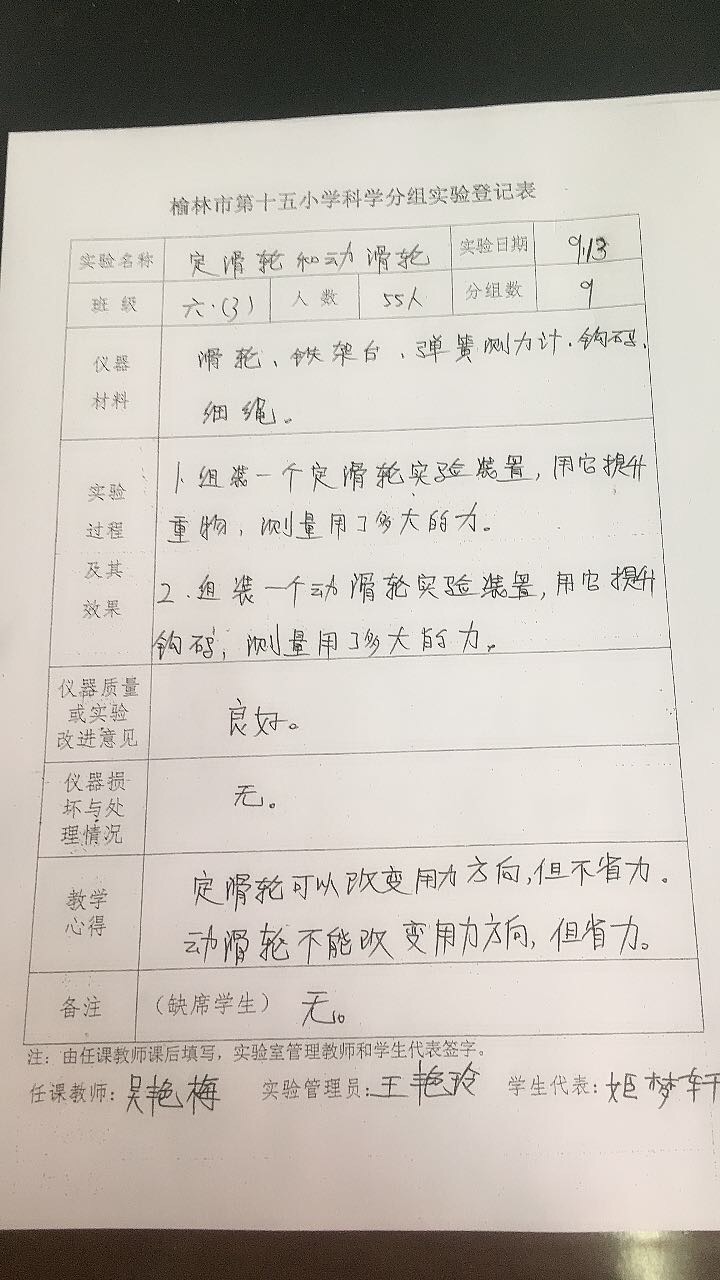 榆林市第十五小学科学分组实验登记表
实验名称 定滑轮和动滑轮 实验日期 9.13
班级 六.(3) 人数 55人 分组数 9
仪器材料 滑轮、铁架台、弹簧测力计.钩码.
细绳。
实验过程及其效果 1.组装一个定滑轮实验装置,用它提升
重物,测量用了多大的力。
2.组装一个动滑轮实验装置,用它提升
钩码,测量用了多大的力。
仪器质量或实验改进意见 良好。
仪器损坏与处理情况 无。
教学心得 定滑轮可以改变用力方向,但不省力。
动滑轮不能改变用力方向,但省力。
备注 (缺席学生) 无。
注:由任课教师课后填写,实验室管理教师和学生代表签字。
任课教师:吴艳梅 实验管理员:王艳玲 学生代表:姬梦轩